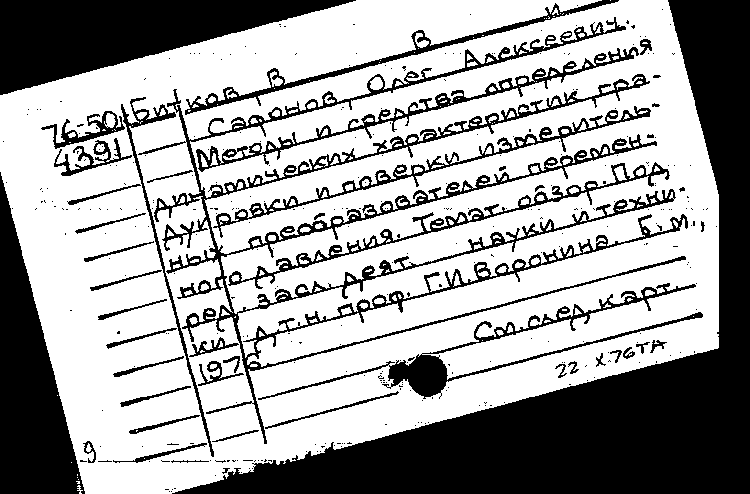 В И
76-50 Битков, В В
4391 Сафонов, Олег Алексеевич.
Методы и средства определения
динамических характеристик, гра-
дуировки и поверки измеритель-
ных преобразователей перемен-
ного давления. Темат. обзор. Под
ред. засл. деят. науки и техни-
ки д.т.н. проф. Г.И. Воронина. Б. м.,
1976.
См. след. карт.
22 X 76 ТА
9